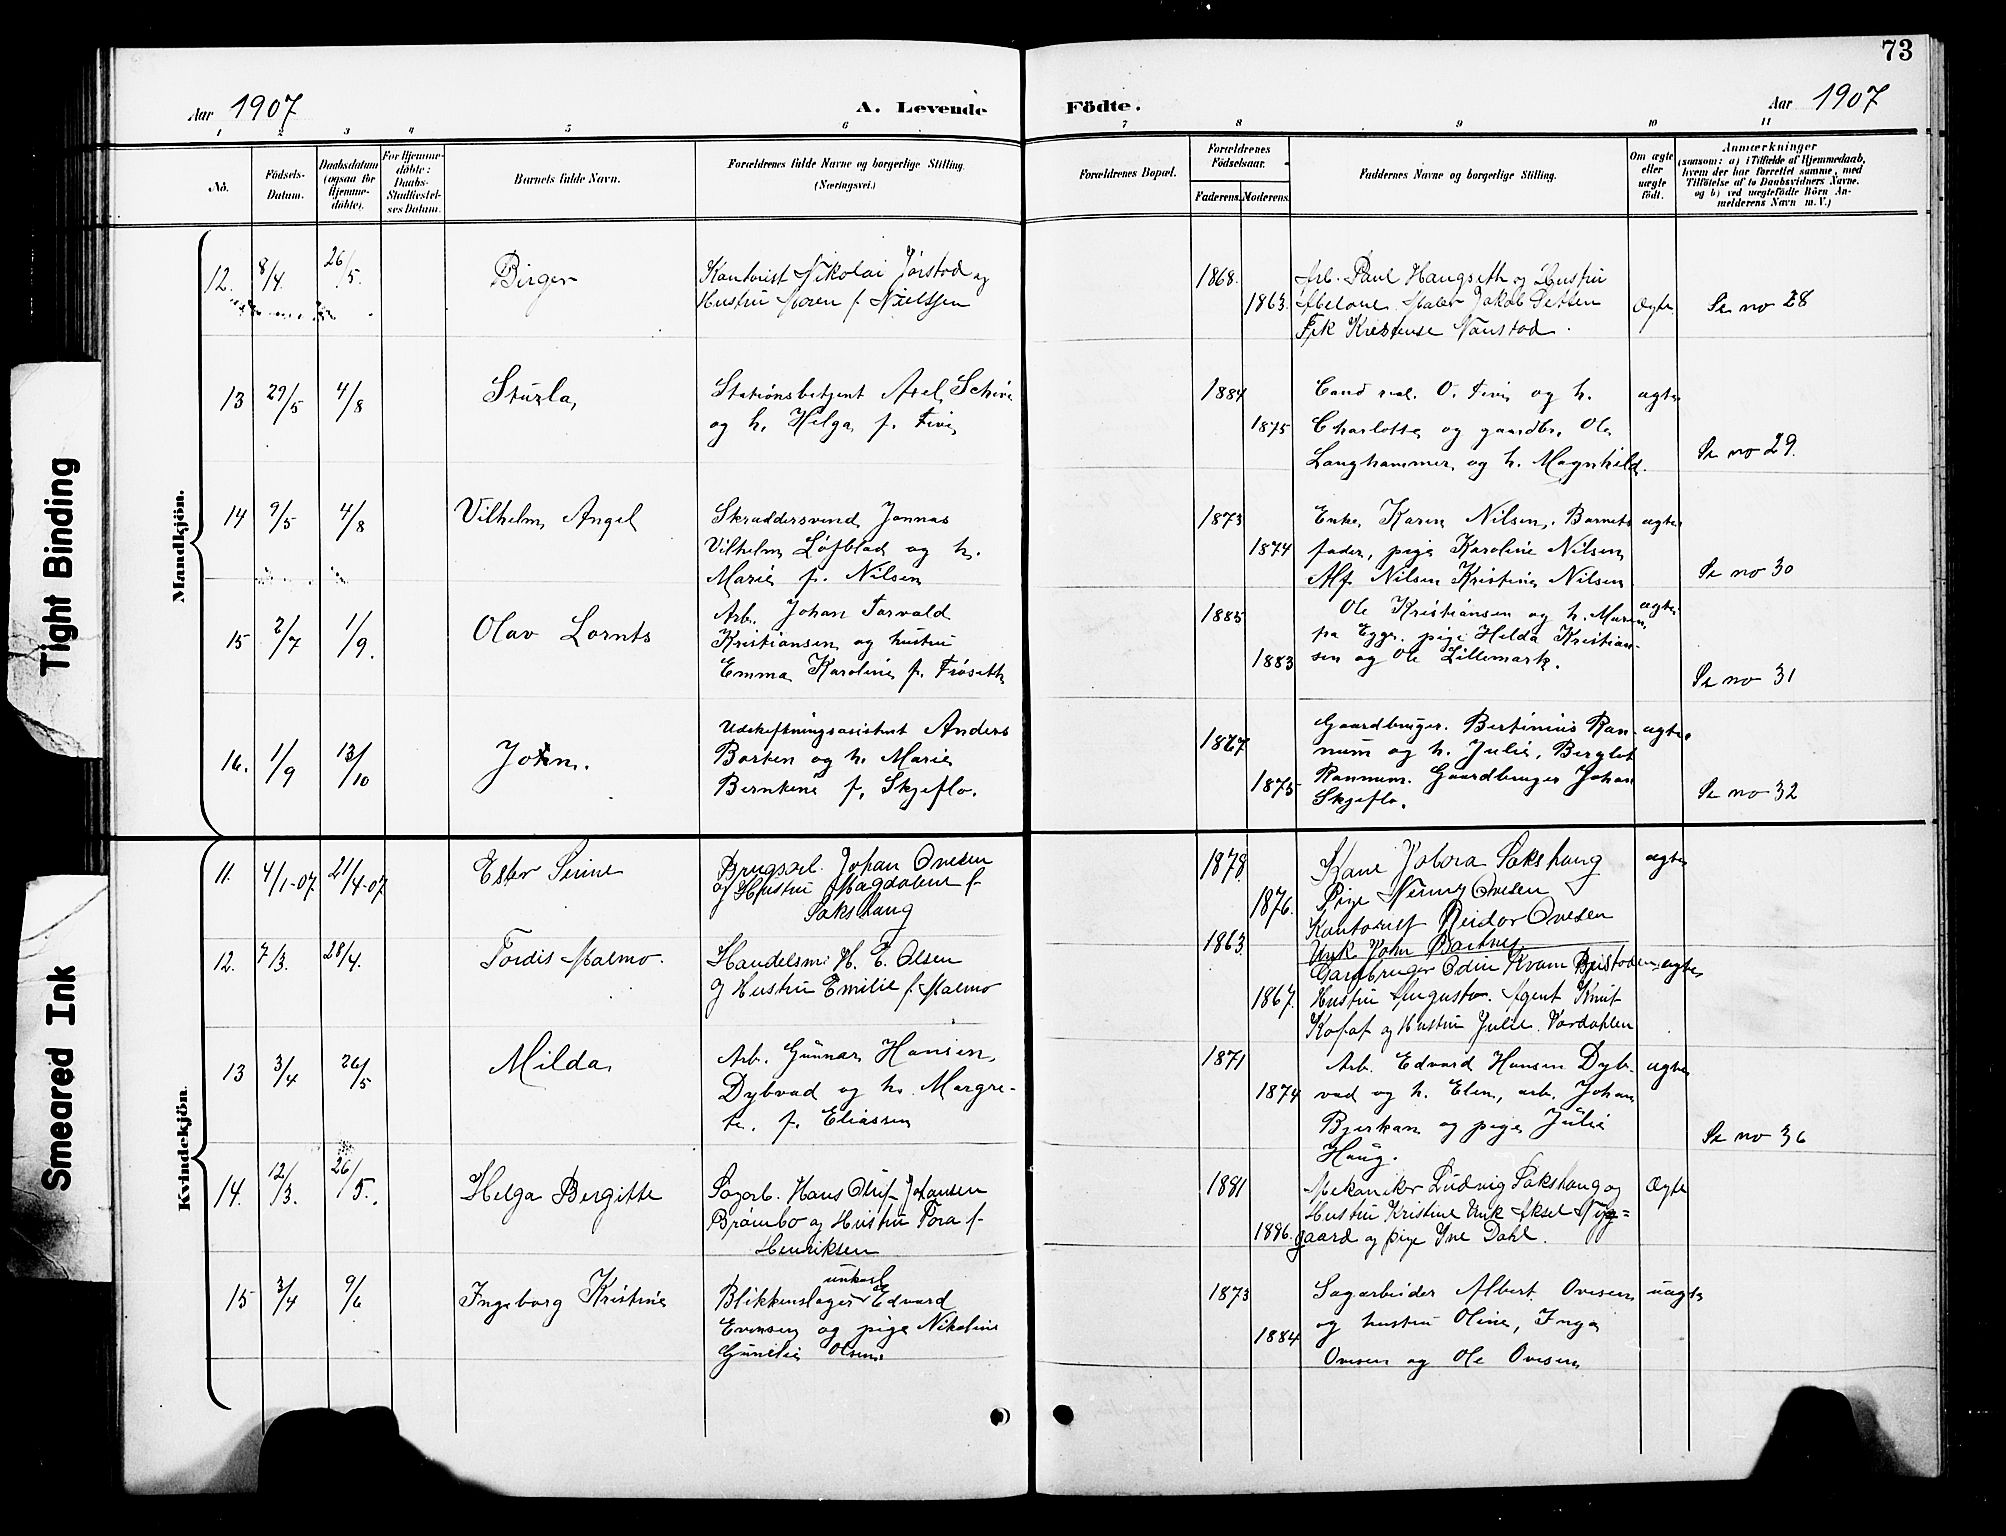 73
Aar 1907
A. Levende
Födte.
Aar 1907
1 2 3 4 5 6 7 8 9 10 11
No.
Födsels-
Datum.
Daabsdatum
(ogsaa for
Hjemme-
döbte).
For Hjemme-
döbte:
Daabs-
Stadfæstel-
ses Datum.
Barnets fulde Navn.
Forældrenes fulde Navne og borgerlige Stilling.
(Næringsvei.)
Forældrenes Bopæl.
Forældrenes
Födselsaar.
Faderens. Moderens.
Faddernes Navne og borgerlige Stilling.
Om ægte
eller
uægte
födt.
Anmærkninger
(saasom: a) i Tilfælde af Hjemmedaab,
hvem der har forrettet samme, med
Tilföielse af to Daabsvidners Navne.
og b) ved uægtefödte Börn An-
melderens Navn m. V.)
Mandkjön.
12. 8/4. 26/5. Birger
Kontorist Nikolai Jørstad og
Hustru Maren f. Nielssen
1868.
1863.
Arb. Paul Haugseth og Hustru
Abelone. Maler Jakob
Frk Kristense Naustad.
Ægte
Se no 28
13 29/5 4/8 Sturla,
Stationsbetjent Axel Schive
og h. Helga f. Five
1884
1875
Cand real. O. Five og h.
Charlotte og gaardbr. Ole
Langhammer og h. Magnhild.
ægte
Se no 29.
14 9/5 4/8 Vilhelm Angel
Skræddersvend Jonnas
Vilhelm Løfblad og h.
Marie f. Nilsen
1873
1874
Enke Karen Nilsen, Barnets
fader, pige Karoline Nilsen
Alf Nilsen Kristine Nilsen
ægte
Se no 30
15 2/7 1/9. Olav Lornts
Arb. Johan Torvald
Kristiansen og hustru
Emma Karoline f. Frøseth
1885
1883
Ole Kristiansen og h. Maren,
fra Egge. pige Helda Kristian-
sen og Ole Lillemark.
ægte
Se no 31
16. 1/9 13/10 John.
Udskiftningsassistent Anders
Barten og h. Marie
Berntine f. Skjeflo.
1867
1875
Gaardbruger. Bertinius Ran-
num og h. Julie, Berglet
Rannum. Gaardbruger Johan
Skjeflo.
ægte
Se no 32
Kvindekjön.
11. 4/1-07 21/4-07 Ester Sinne
Brugsarb. Johan Ovesen
og Hustru Magdalene f.
Sakshaug
1878
1876.
Kone Sakshaug
Pige Ovesen
Kontorist Reidar Ovesen
Unk. John Bartnes
ægte
12. 7/3. 28/4. Tordis Malmo.
Handelsm. H. E. Olsen
og Hustru Emilie f. Malmo
1863
1867.
Gardbruger Odin Kvam
Hustru Augusta. Agent Knut
og Hustru Julie Vordahlen
ægte
13 3/4 26/5 Milda
Arb. Gunnar Hansen
Dybvad og h. Margre-
te f. Eliassen
1871
1874
Arb. Edvard Hansen Dyb-
vad og h. Elen, arb. Johan
Bjerkan og pige Julie
Haug.
ægte
Se no 36
14. 12/3. 26/5. Helga Bergitte
Sagarb. Hans Oluf Johansen
Brømbo og Hustru Tora f.
Henriksen
1881
1886.
Mekaniker Ludvig Sakshaug og
Hustru Kristine Unk Aksel Nyg=
gaard og pige Ine Dahl.
Ægte
15 3/4 9/6 Ingeborg Kristine
unkarl
Blikkenslager Edvard
Evensen og pige Nikoline
Gunelie Olsen
1873
1884
Sagarbeider Albert Ovesen
og hustru Oline, Inga
Ovesen og Ole Ovesen
uægte
Tight Binding
Smeared Ink